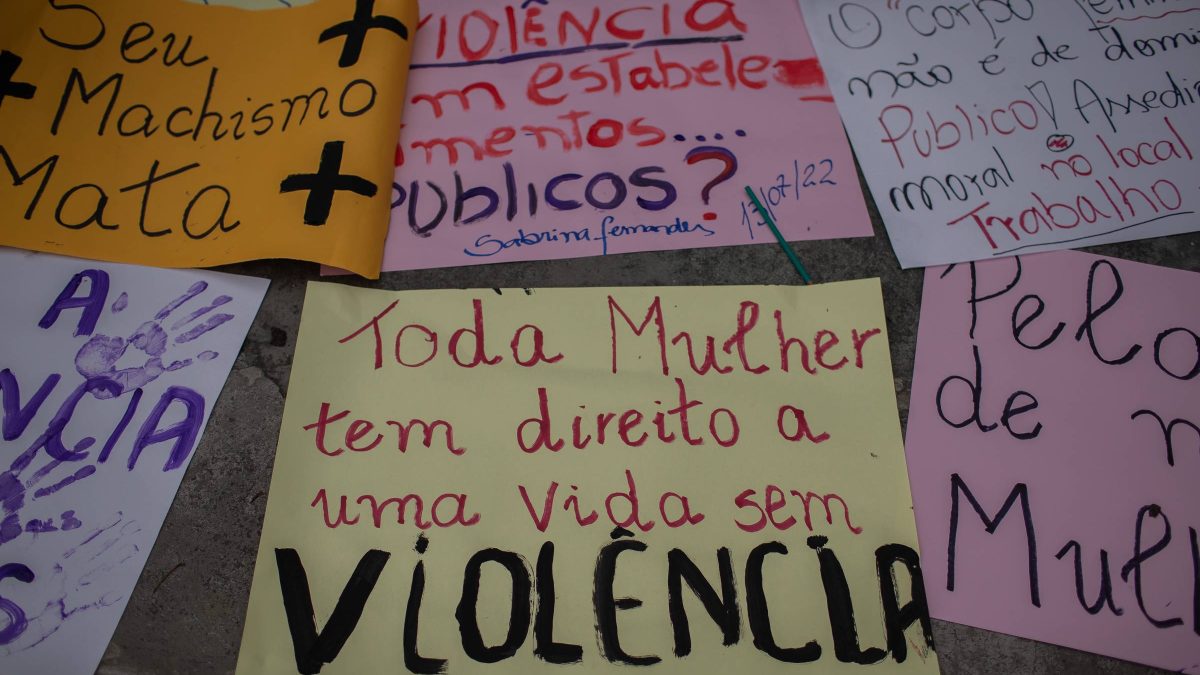 Seu
Machismo
Mata
VIOLÊNCIA
em estabele-
cimentos....
PÚBLICOS?
Sabrina fernandes 13/07/22
O "corpo
não é de
Público! Assedi
moral no local
Trabalho
A
VCIA
Toda Mulher
tem direito a
uma vida sem
VIOLÊNCIA
Pelo
de
Mul